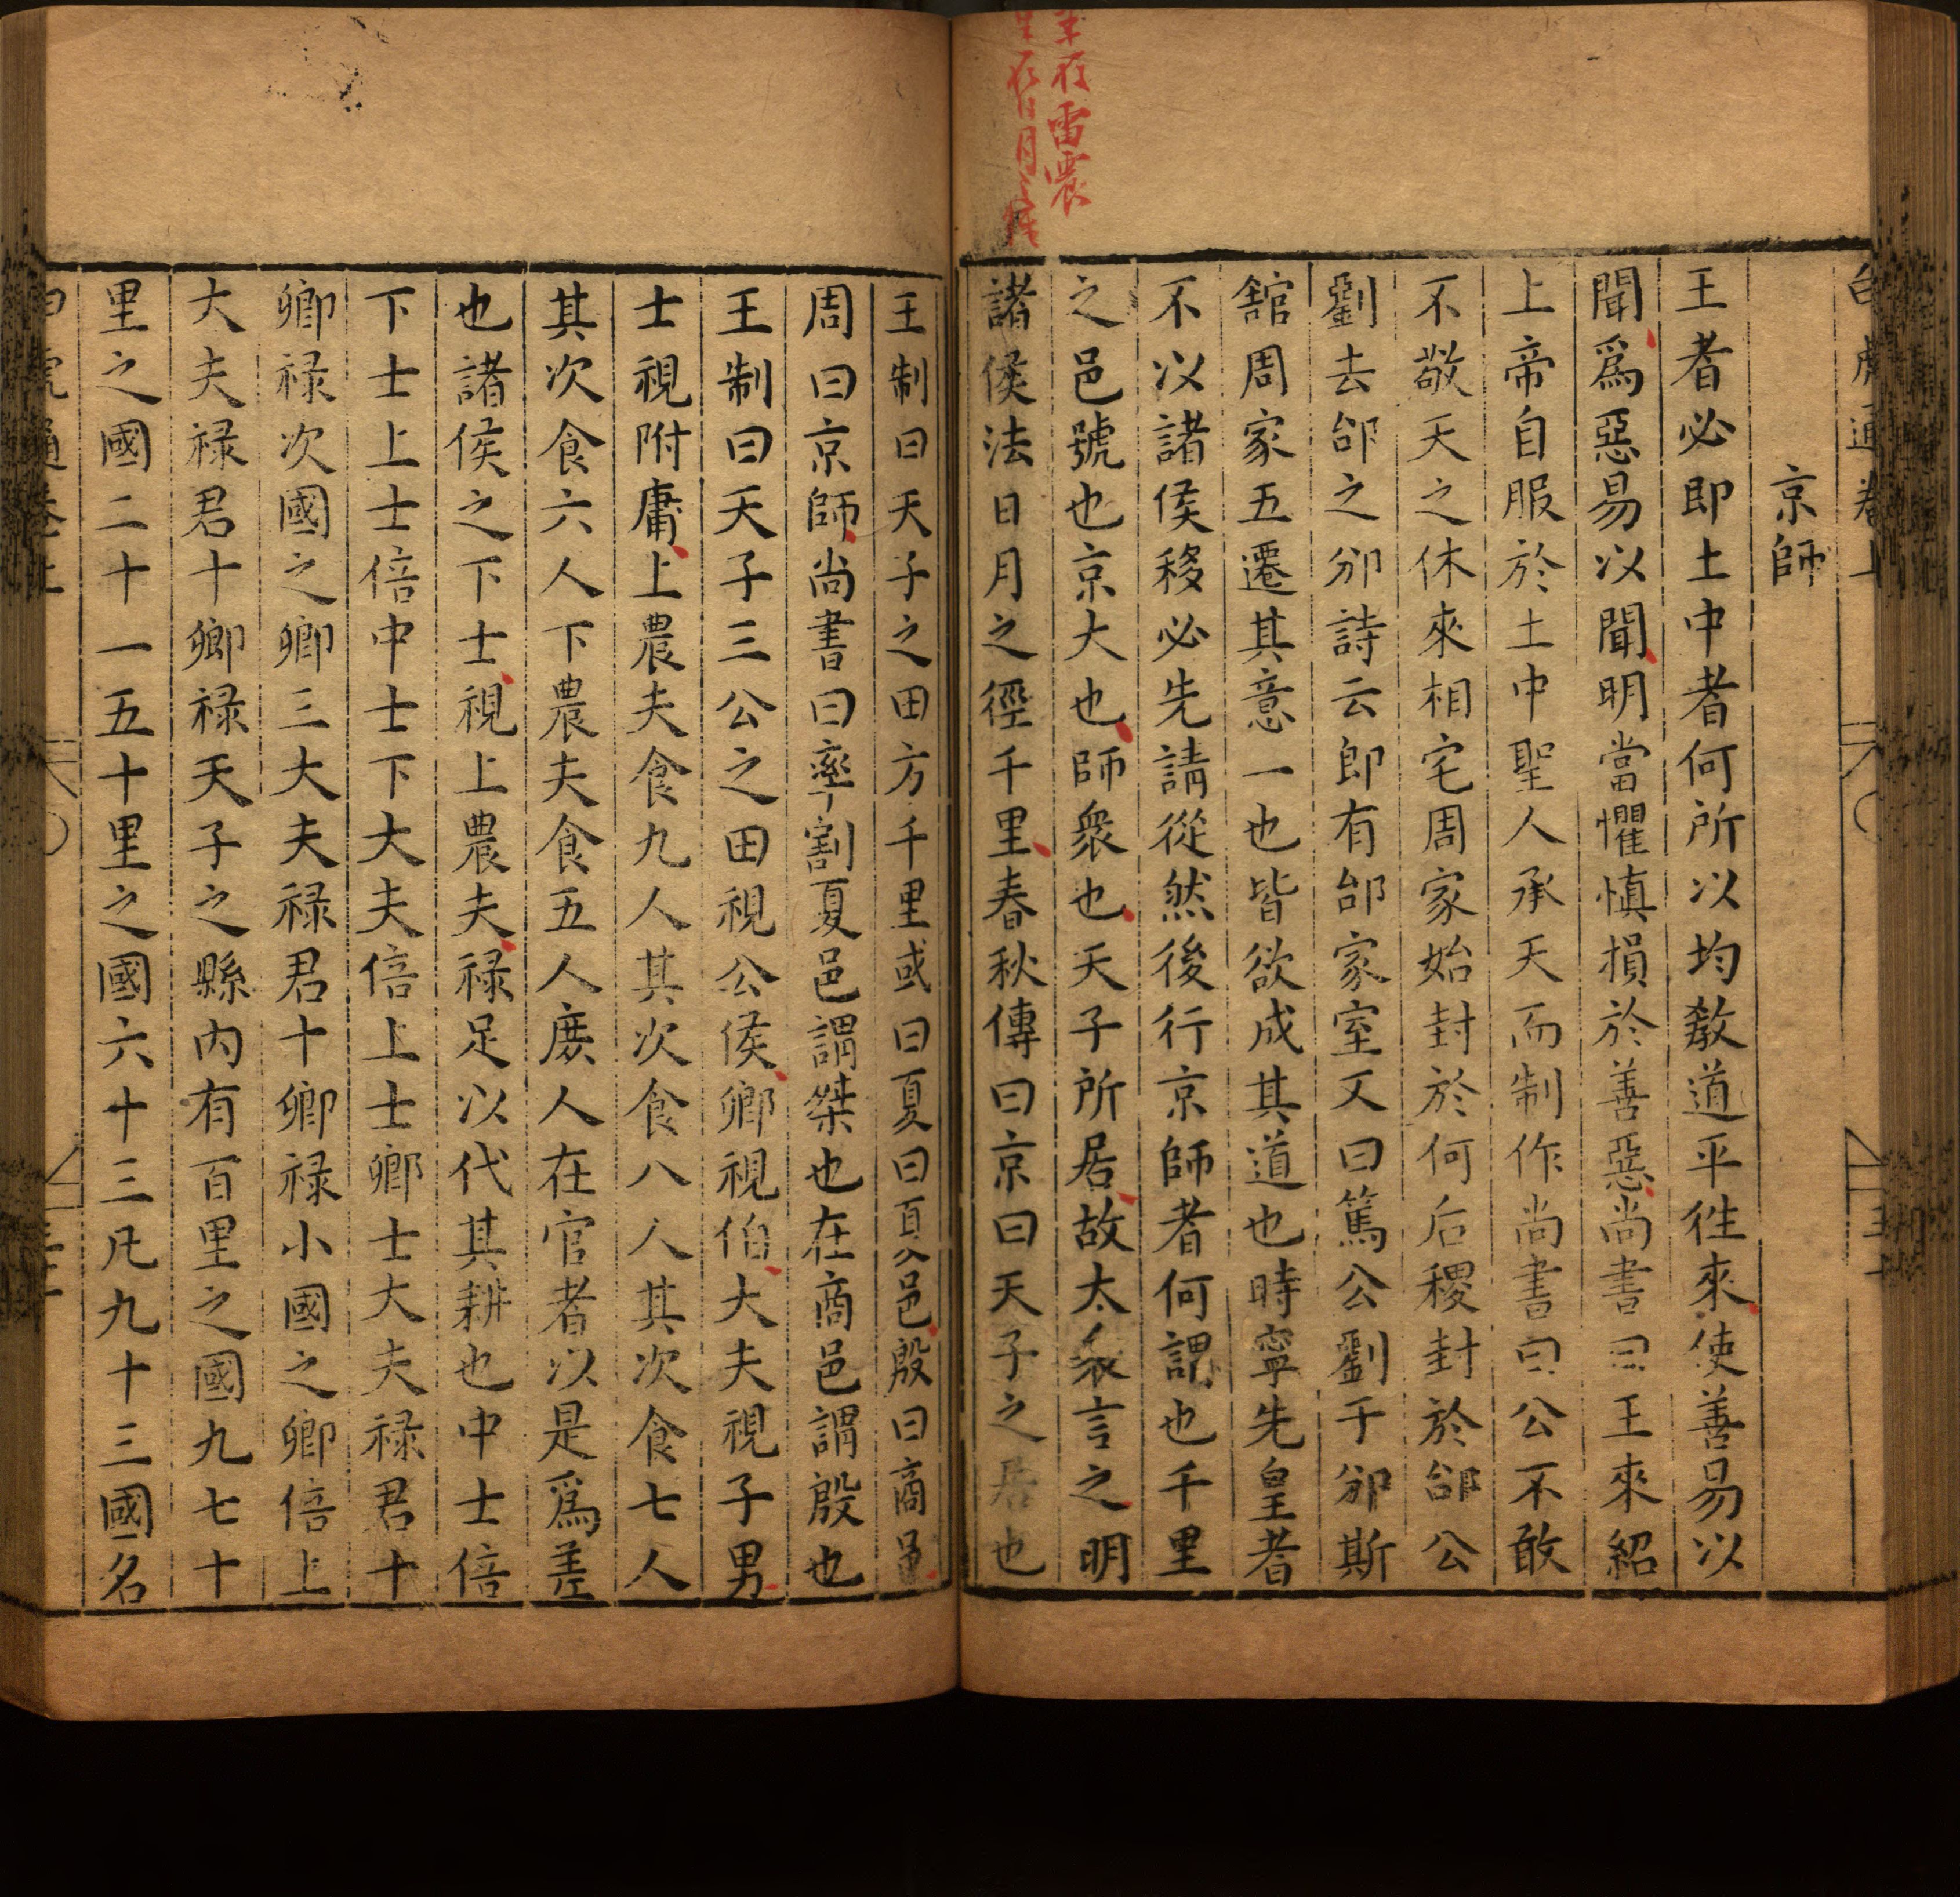 京師
王者必即土中者何所以均敎道平徃來使善易以
聞爲惡易以聞明當懼慎損於善惡尚書曰王來紹
上帝自服於土中聖人承天而制作尚書曰公不敢
不敬天之休來相宅周家始封於何后稷封於邰公
劉去邰之邠詩云卽有邰家室又曰篤公劉于邠斯
舘周家五遷其意一也皆欲成其道也時寧先皇者
不以諸侯移必先請從然後行京師者何謂也千里
之邑號也京大也師衆也天子所居故太衆言之明
諸侯法日月之徑千里春秋傳曰京曰天子之居也
王制曰天子之田方千里或曰夏曰夏邑殷曰商邑
周曰京師尚書曰率割夏邑謂桀也在商邑謂殷也
王制曰天子三公之田視公侯卿視伯大夫視子男
士視附庸上農夫食九人其次食八人其次食七人
其次食六人下農夫食五人庶人在官者以是爲差
也諸侯之下士視上農夫祿足以代其耕也中士倍
下士上士倍中士下大夫倍上士卿士大夫祿君十
卿祿次國之卿三大夫祿君十卿祿小國之卿倍上
大夫祿君十卿祿天子之縣内有百里之國九七十
里之國二十一五十里之國六十三凡九十三國名